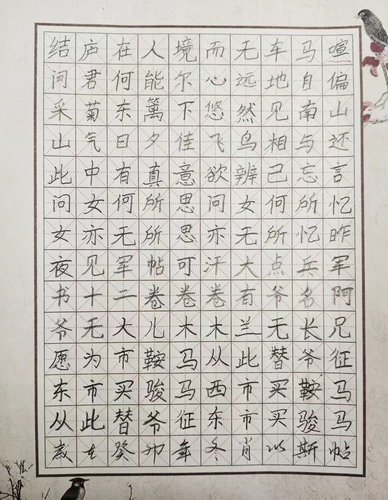 结庐在人境而无车马喧
问君何能尔心远地自偏
采菊东篱下悠然见南山
山气日夕佳飞鸟相与还
此中有真意欲辨已忘言
问女何所思问女何所忆
女亦无所思亦无所忆昨
夜见军帖可汗大点兵军
书十二卷卷卷有爷名阿
爷无大儿木木兰无长兄
愿为市鞍马从此替爷征
东市买骏马西市买鞍马
从此替爷征东市买骏马
岁七癸卯年冬肖以斯帖